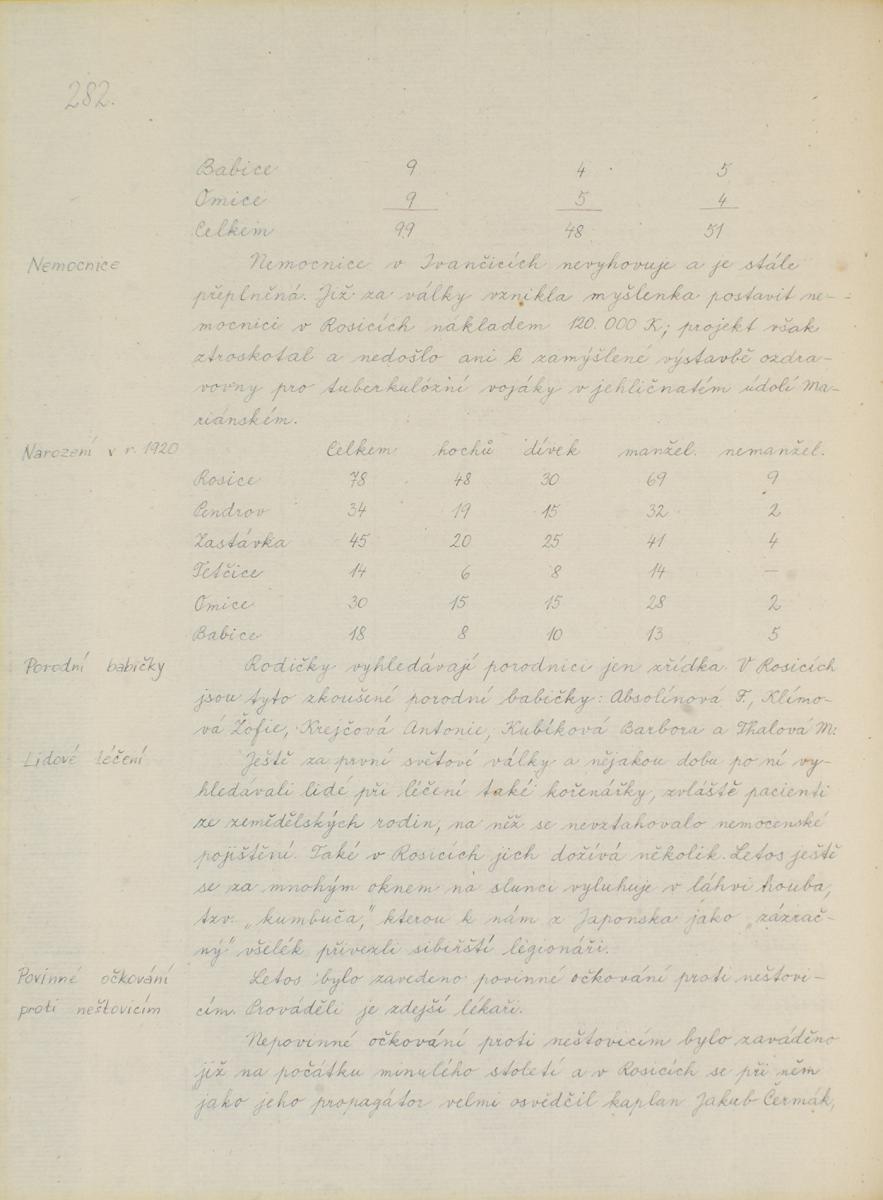 282.
Babice 9 4 5
Omice 9 5 4
Celkem 99 48 51
Nemocnice
Nemocnice v Ivančicích nevyhovuje a je stále
přeplněná. Již za války vznikla myšlenka postavit ne-
mocnici v Rosicích nákladem 120.000 K; projekt však
ztroskotal a nedošlo ani k zamýšlené výstavbě ozdra-
vovny pro tuberkulózní vojáky v jehličnatém údolí Ma-
riánském.
Narození v r. 1920
Celkem hochů dívek manžel. nemanžel.
Rosice 78 48 30 69 9
Pendrov 34 19 15 32 2
Zastávka 45 20 25 41 4
Tetčice 14 6 8 14 —
Omice 30 15 15 28 2
Babice 18 8 10 13 5
Porodní babičky
Rodičky vyhledávají porodnici jen zřídka. V Rosicích
jsou tyto zkoušené porodní babičky: Absolínová F., Klímo-
vá Žofie, Krejčová Antonie, Kubíková Barbora a Thalová M.
Lidové léčení
Ještě za první světové války a nějakou dobu po ní vy-
hledávali lidé při léčení také kořenářky, zvláště pacienti
ze zemědělských rodin, na něž se nevztahovalo nemocenské
pojištění. Také v Rosicích jich dožívá několik. Letos ještě
se za mnohým oknem na slunci vyluhuje v láhvi houba,
tzv. „kumbuča," kterou k nám z Japonska jako „zázrač-
ný" všelék přivezli sibiřští légionáři.
Povinné očkování
proti neštovicím
Letos bylo zavedeno povinné očkování proti neštovi-
cím. Prováděli je zdejší lékaři.
Nepovinné očkování proti neštovicím bylo zaváděno
již na počátku minulého století a v Rosicích se při něm
jako jeho propagátor velmi osvědčil kaplan Jakub Čermák,